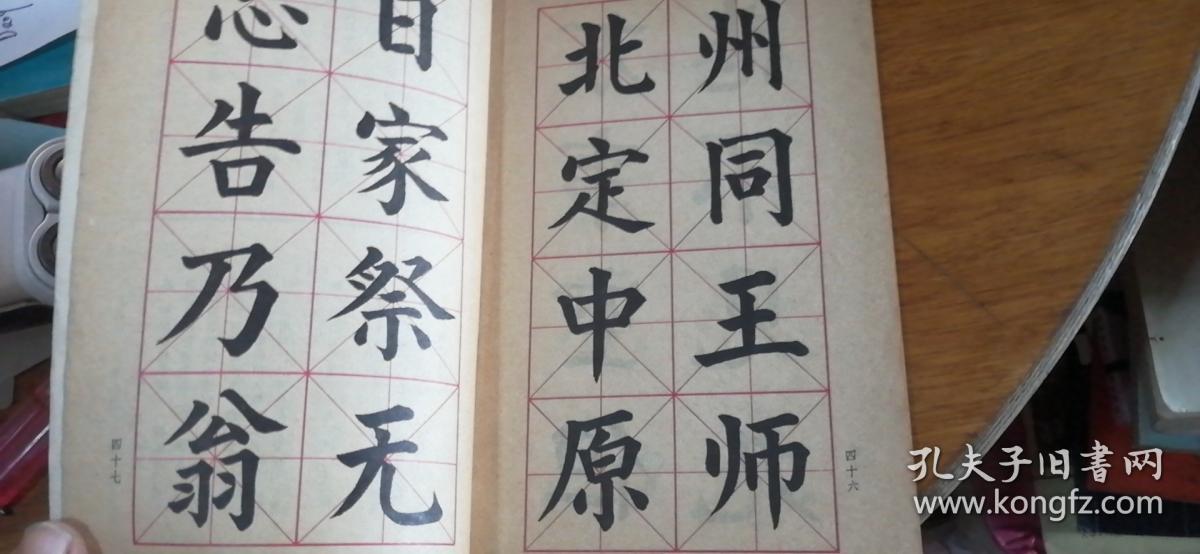 州同王师
北定中原
四十六
日家祭无
忘告乃翁
四十七
孔夫子旧書网
www.kongfz.com